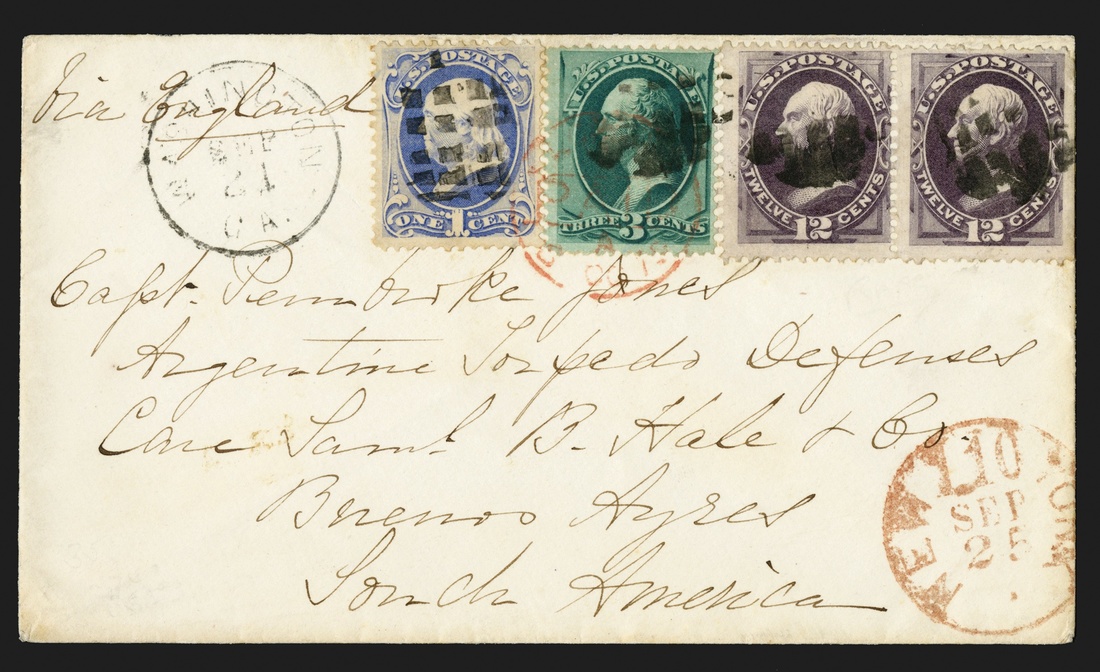 Via England
WASHINGTON
SEP
21
GA.
U.S. POSTAGE
ONE 1 CENT
U.S. POSTAGE
THREE 3 CENTS
U.S. POSTAGE
TWELVE 12 CENTS
U.S. POSTAGE
TWELVE 12 CENTS
Capt. Pembroke Jones
Argentine Torpedo Defenses
Care Saml. B. Hale & Co.
Buenos Ayres
South America
NEW YORK
10
SEP
25